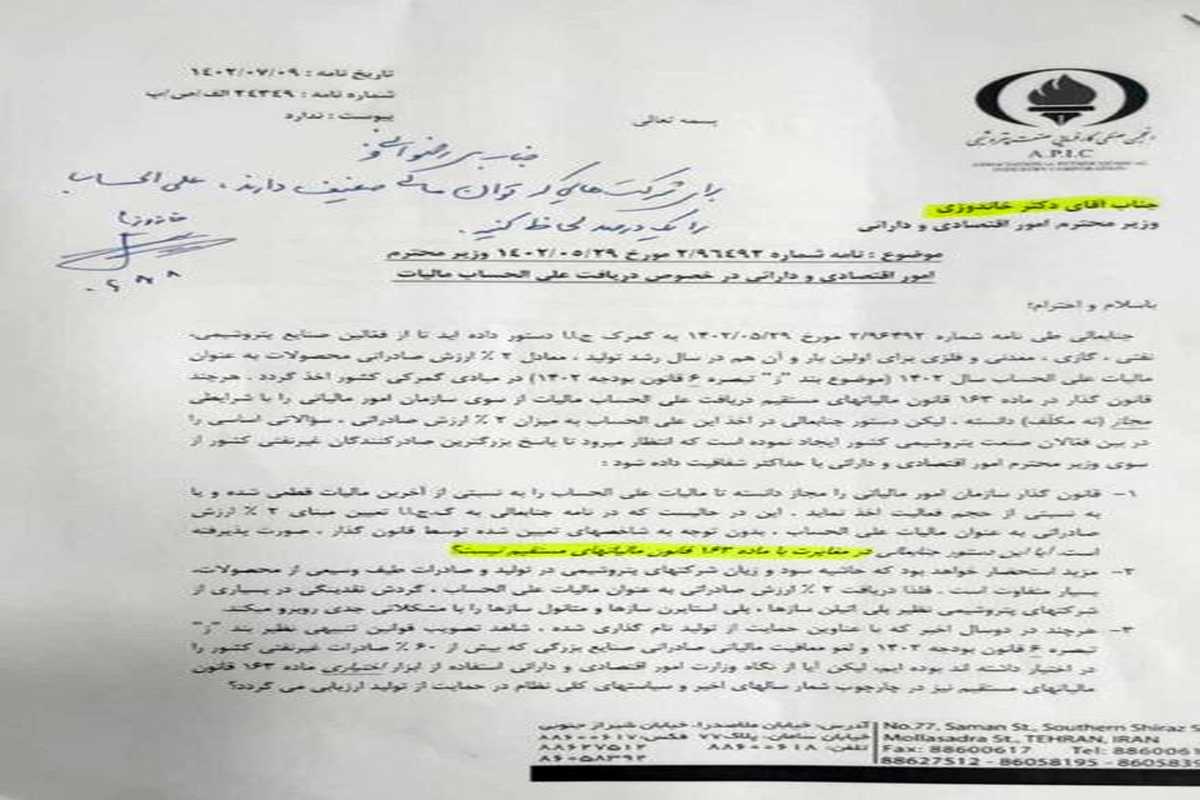 تاریخ نامه : ۱۴۰۲/۰۷/۰۹
شماره نامه : ۲۴۳۴۹ الف/ص/پ
پیوست : ندارد
بسمه تعالی
انجمن صنفی کارفرمایی صنعت پتروشیمی
A.P.I.C
ASSOCIATION OF PETROCHEMICAL
INDUSTRY CORPORATION
جناب
برای شرکت هایی که توان مالی ضعیف دارند ، علی الحساب
را یک درصد لحاظ کنید .
جناب آقای دکتر خاندوزی
وزیر محترم امور اقتصادی و دارائی
موضوع : نامه شماره ۲/۹۶۴۹۲ مورخ ۱۴۰۲/۰۵/۲۹ وزیر محترم
امور اقتصادی و دارائی در خصوص دریافت علی الحساب مالیات
باسلام و احترام؛
جنابعالی طی نامه شماره ۲/۹۶۴۹۲ مورخ ۱۴۰۲/۰۵/۲۹ به گمرک ج.ا.ا دستور داده اید تا از فعالین صنایع پتروشیمی،
نفتی ، گازی ، معدنی و فلزی برای اولین بار و آن هم در سال رشد تولید ، معادل ۲ ٪ ارزش صادراتی محصولات به عنوان
مالیات علی الحساب سال ۱۴۰۲ (موضوع بند "ز" تبصره ۶ قانون بودجه ۱۴۰۲) در مبادی گمرکی کشور اخذ گردد . هرچند
قانون گذار در ماده ۱۶۳ قانون مالیاتهای مستقیم دریافت علی الحساب مالیات از سوی سازمان امور مالیاتی را با شرایطی
مجاز (نه مکلف) دانسته ، لیکن دستور جنابعالی در اخذ این علی الحساب به میزان ۲ ٪ ارزش صادراتی ، سؤالاتی اساسی را
در بین فعالان صنعت پتروشیمی کشور ایجاد نموده است که انتظار میرود تا پاسخ بزرگترین صادرکنندگان غیرنفتی کشور از
سوی وزیر محترم امور اقتصادی و دارائی با حداکثر شفافیت داده شود :
۱- قانون گذار سازمان امور مالیاتی را مجاز دانسته تا مالیات علی الحساب را به نسبتی از آخرین مالیات قطعی شده و یا
به نسبتی از حجم فعالیت اخذ نماید . این در حالیست که در نامه جنابعالی به گ.ج.ا.ا تعیین مبنای ۲ ٪ ارزش
صادراتی به عنوان مالیات علی الحساب ، بدون توجه به شاخصهای تعیین شده توسط قانون گذار ، صورت پذیرفته
است. آیا این دستور جنابعالی در مغایرت با ماده ۱۶۳ قانون مالیاتهای مستقیم نیست؟
۲- مزید استحضار خواهد بود که حاشیه سود و زیان شرکتهای پتروشیمی در تولید و صادرات طیف وسیعی از محصولات،
بسیار متفاوت است . فلذا دریافت ۲ ٪ ارزش صادراتی به عنوان مالیات علی الحساب ، گردش نقدینگی در بسیاری از
شرکتهای پتروشیمی نظیر پلی اتیلن سازها ، پلی استایرن سازها و متانول سازها را با مشکلاتی جدی روبرو میکند.
۳- هرچند در دوسال اخیر که با عناوین حمایت از تولید نام گذاری شده ، شاهد تصویب قوانین تنبیهی نظیر بند "ز"
تبصره ۶ قانون بودجه ۱۴۰۲ و لغو معافیت مالیاتی صادراتی صنایع بزرگی که بیش از ۶۰ ٪ صادرات غیرنفتی کشور را
در اختیار داشته اند بوده ایم، لیکن آیا از نگاه وزارت امور اقتصادی و دارائی استفاده از ابزار اختیاری ماده ۱۶۳ قانون
مالیاتهای مستقیم نیز در چارچوب شعار سالهای اخیر و سیاستهای کلی نظام در حمایت از تولید ارزیابی می گردد؟
آدرس: خیابان ملاصدرا، خیابان شیراز جنوبی
خیابان سامان، پلاک۷۷ فکس: ۸۸۶۰۰۶۱۷
تلفن: ۸۸۶۰۰۶۱۸ ۸۸۶۲۷۵۱۲
۸۶۰۵۸۳۹۲
No.77, Saman St., Southern Shiraz S
Mollasadra St., TEHRAN, IRAN
Fax: 88600617 Tel: 8860061
88627512 - 86058195 - 8605839